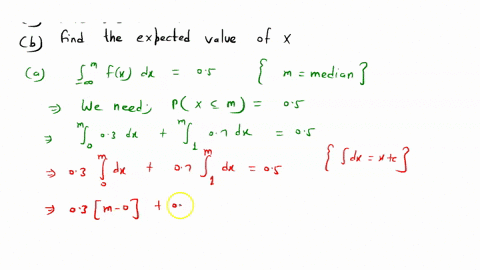 (b) find the expected value of x
(a) ∫_{-∞}^{m} f(x) dx = 0.5 { m = median }
⇒ We need; P( x ≤ m) = 0.5
⇒ ∫_{0}^{m} 0.3 dx + ∫_{1}^{m} 0.7 dx = 0.5
⇒ 0.3 ∫_{0}^{m} dx + 0.7 ∫_{1}^{m} dx = 0.5 { ∫dx = x+c }
⇒ 0.3 [m-0] + 0.